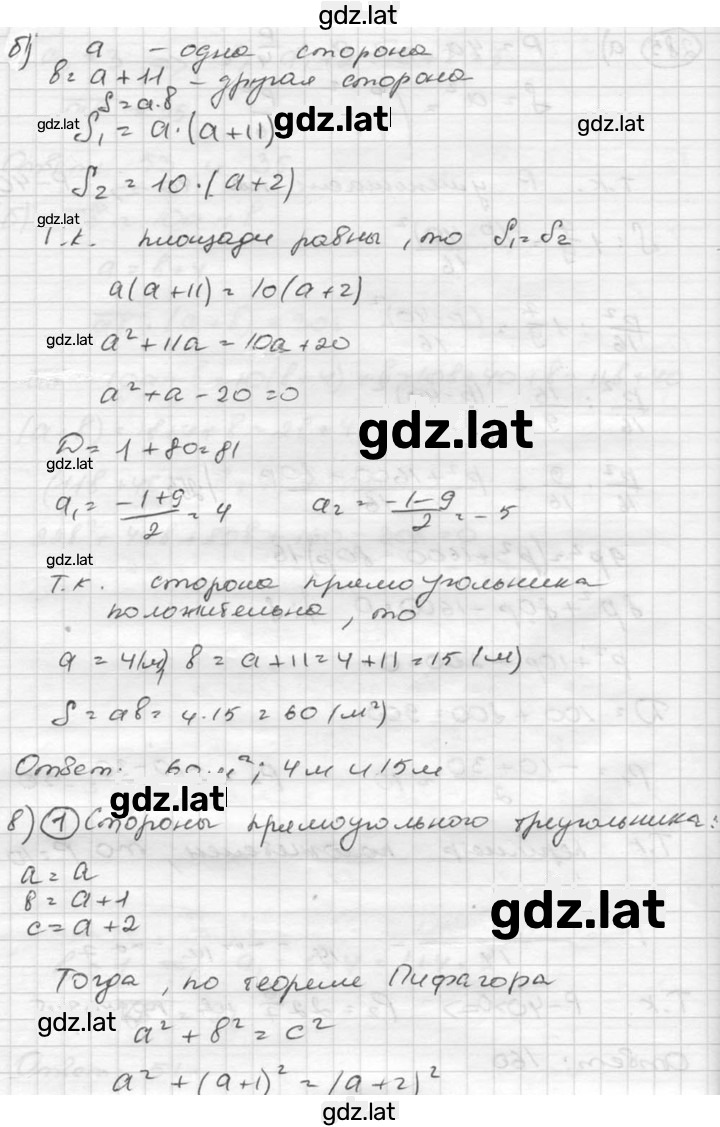 gdz.lat
б) a - одна сторона
в = a + 11 - другая сторона
S = a·в
gdz.lat
S₁ = a·(a+11)
gdz.lat
gdz.lat
S₂ = 10·(a+2)
gdz.lat
Т.к. площади равны, то S₁ = S₂
a(a+11) = 10(a+2)
gdz.lat
a² + 11a = 10a + 20
a² + a - 20 = 0
gdz.lat
D = 1 + 80 = 81
gdz.lat
a₁ = (-1+9)/2 = 4 a₂ = (-1-9)/2 = -5
gdz.lat
Т.к. сторона прямоугольника
положительна, то
a = 4(м), в = a + 11 = 4 + 11 = 15 (м)
S = aв = 4·15 = 60 (м²)
Ответ: 60 м²; 4м и 15м
gdz.lat
в) ① Стороны прямоугольного треугольника:
a = a
в = a + 1
c = a + 2
gdz.lat
Тогда, по теореме Пифагора
gdz.lat
a² + в² = c²
a² + (a+1)² = (a+2)²
gdz.lat